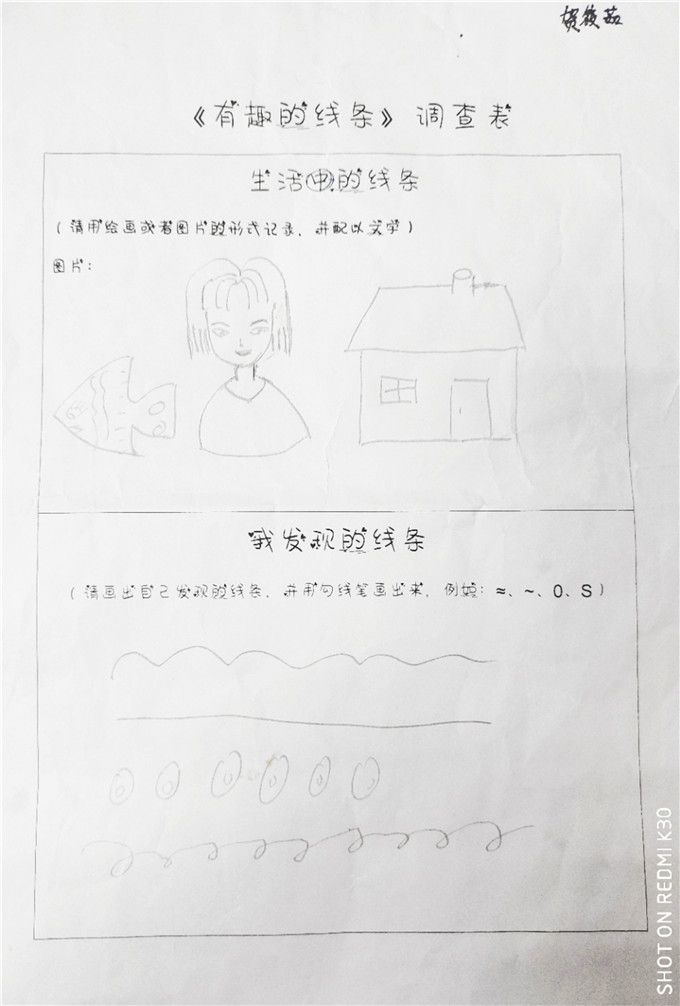 贺筱茹
《有趣的线条》调查表
生活中的线条
(请用绘画或者图片的形式记录，并配以文字)
图片：
我发现的线条
(请画出自己发现的线条，并用勾线笔画出来，例如：≈、~、O、S)
SHOT ON REDMI K30